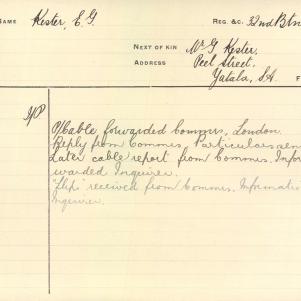 NAME Kester, E.G. REG. &C. 32nd Btn
NEXT OF KIN Mr G Kester,
ADDRESS Peel Street,
Yatala, S.A. F
Cable forwarded Commrs, London.
Reply from Commrs, Particulars
Later cable report from Commrs. Infor
warded Inquirer.
"Slip" received from Commrs. Informatio
Inquirer.